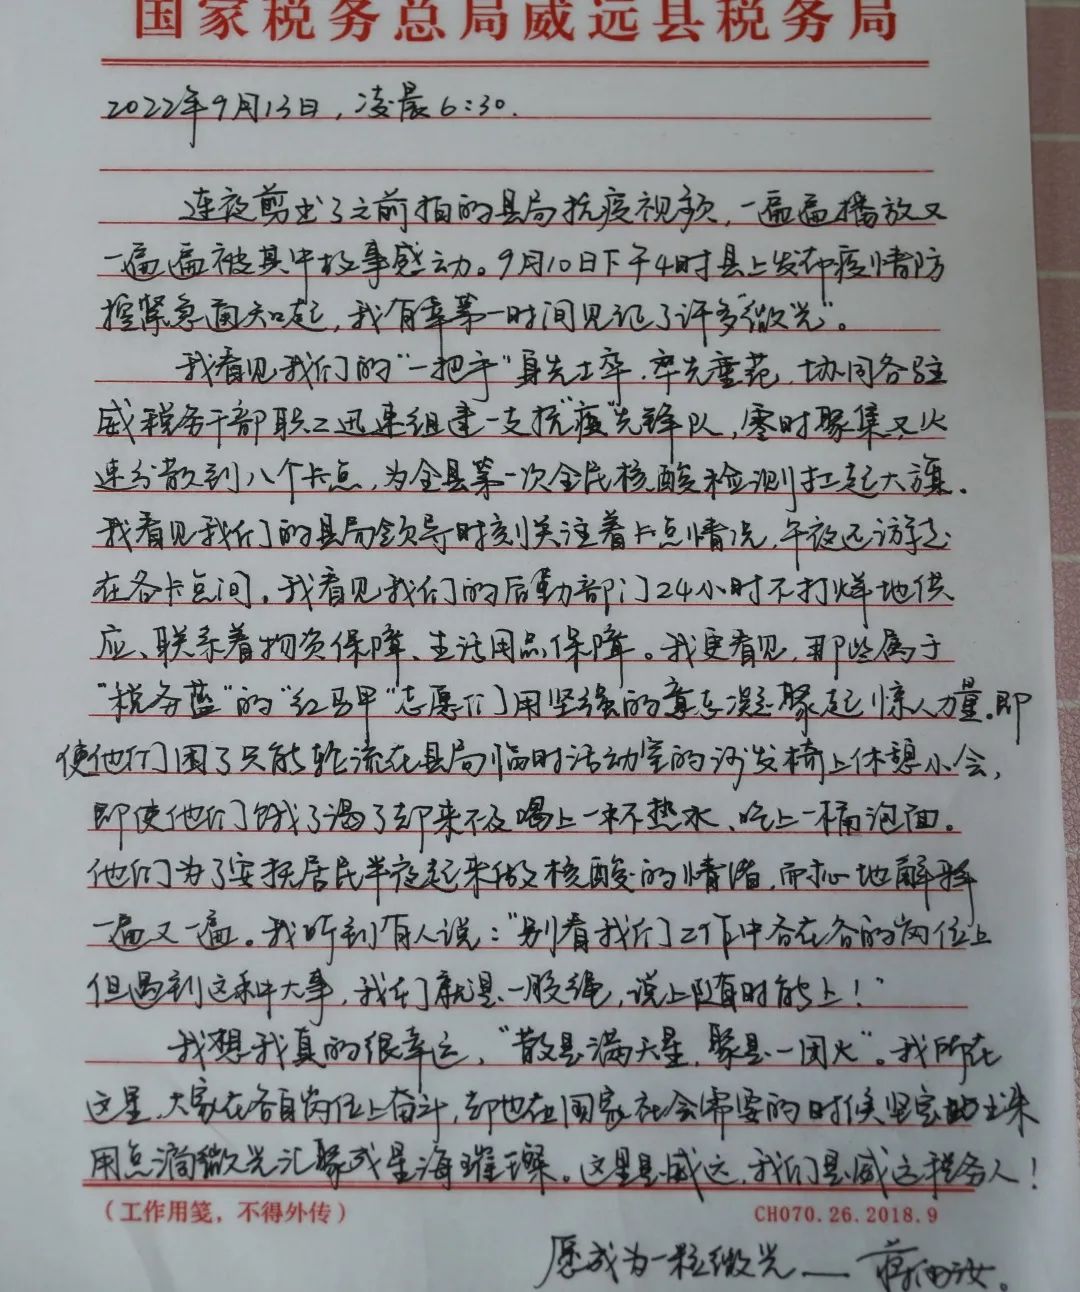 国家税务总局威远县税务局
2022年9月13日，凌晨6:30.
连夜剪出了之前拍的县局抗疫视频，一遍遍播放又
一遍遍被其中故事感动。9月10日下午4时县上发布疫情防
控紧急通知起，我有幸第一时间见证了许多“微光”。
我看见我们的“一把手”身先士卒，率先垂范，协同各驻
威税务干部职工迅速组建一支抗“疫”先锋队，零时聚集又火
速分散到八个卡点，为全县第一次全民核酸检测扛起大旗.
我看见我们的县局领导时刻关注着卡点情况，午夜还游走
在各卡点间，我看见我们的后勤部门24小时不打烊地供
应、联系着物资保障、生活用品保障。我更看见，那些属于
“税务蓝”的“红马甲”志愿们用坚强的意志凝聚起惊人力量.即
使他们困了只能轮流在县局临时活动室的沙发椅上休憩小会，
即使他们饿了渴了却来不及喝上一杯热水、吃上一桶泡面。
他们为了安抚居民半夜起来做核酸的情绪，而耐心地解释
一遍又一遍。我听到有人说：“别看我们工作中各在各的岗位上
但遇到这种大事，我们就是一股绳，说上随时能上！”
我想我真的很幸运，“散是满天星，聚是一团火”。我所在
这里，大家在各自岗位上奋斗，却也在国家社会需要的时候坚定站出来
用点滴微光汇聚成星海璀璨。这里是威远，我们是威远税务人！
（工作用笺，不得外传）
CH070.26.2018.9
愿成为一粒微光——